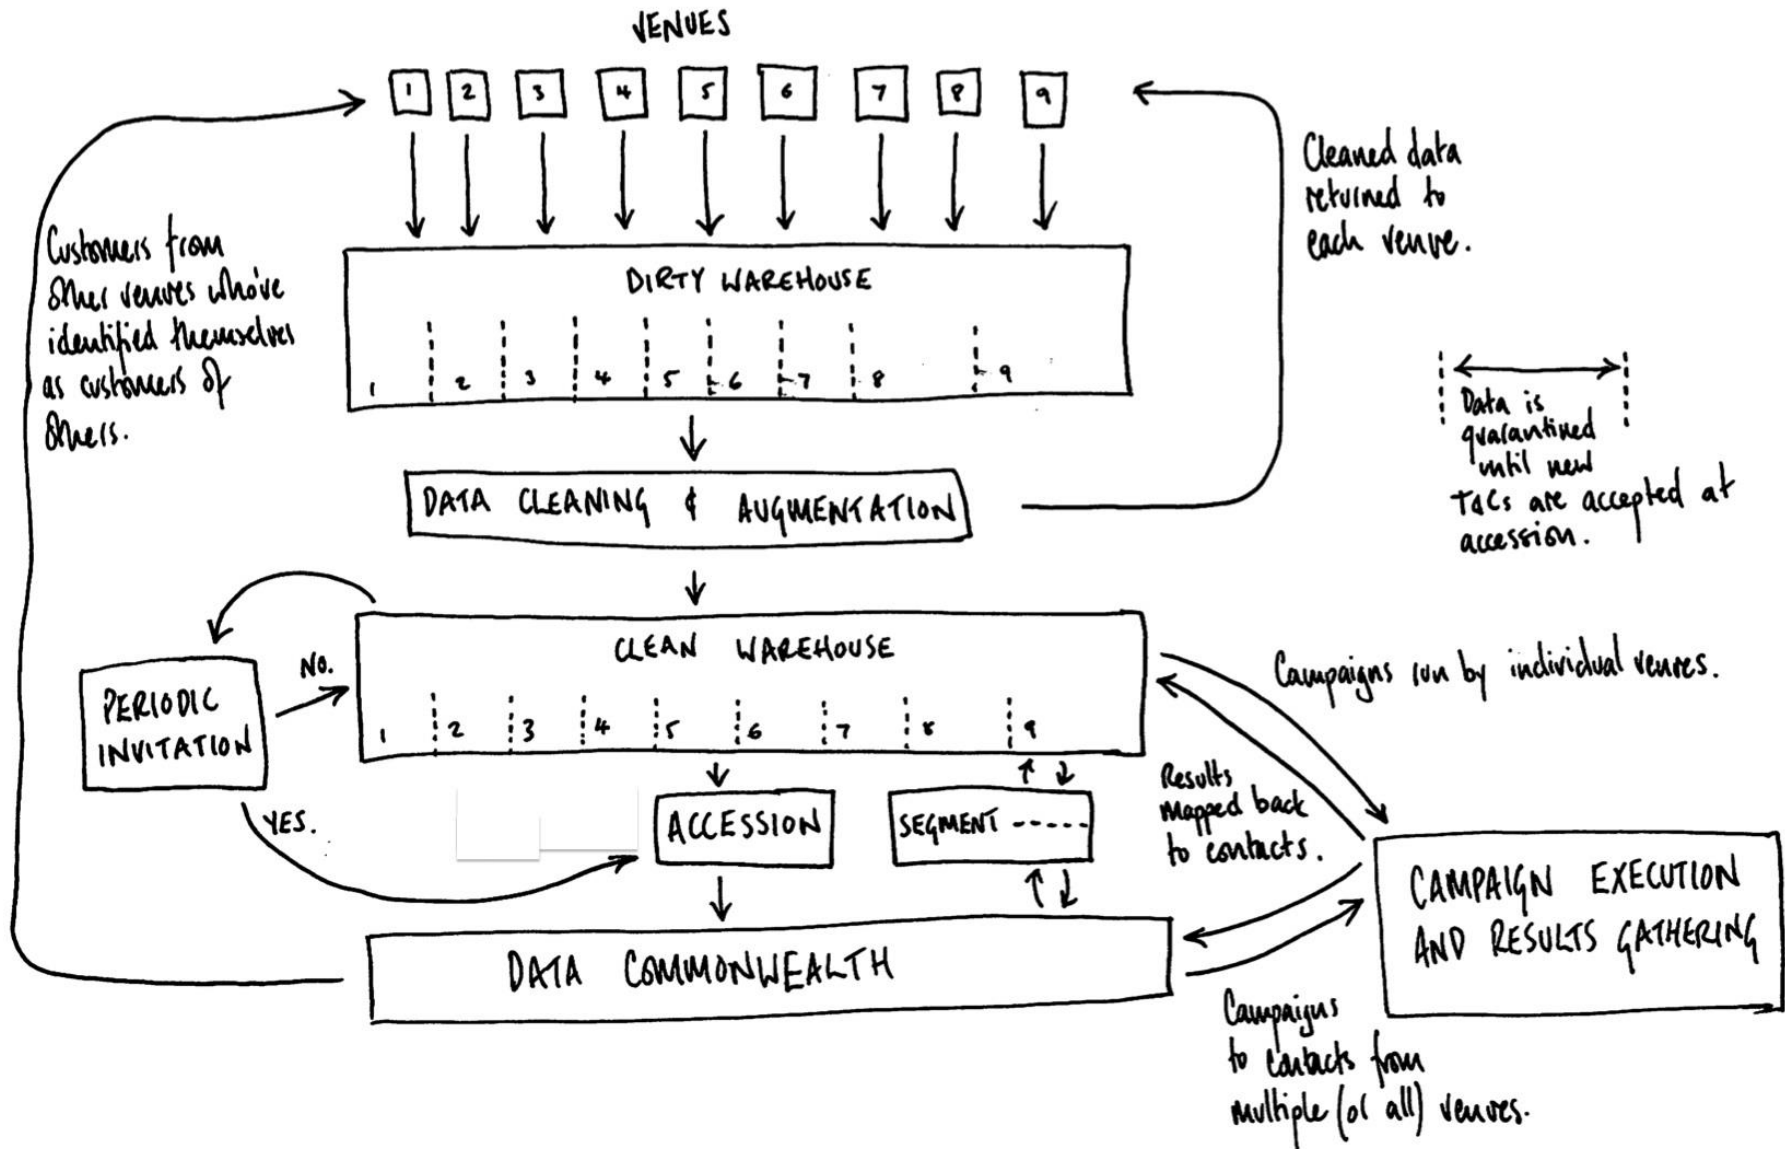 VENUES
1 2 3 4 5 6 7 8 9
Customers from
other venues who've
identified themselves
as customers of
others.
Cleaned data
returned to
each venue.
DIRTY WAREHOUSE
1 2 3 4 5 6 7 8 9
Data is
quarantined
until new
T&Cs are accepted at
accession.
DATA CLEANING & AUGMENTATION
CLEAN WAREHOUSE
1 2 3 4 5 6 7 8 9
PERIODIC
INVITATION
NO.
YES.
Campaigns run by individual venues.
ACCESSION
SEGMENT
Results
mapped back
to contacts.
CAMPAIGN EXECUTION
AND RESULTS GATHERING
DATA COMMONWEALTH
Campaigns
to contacts from
multiple (or all) venues.